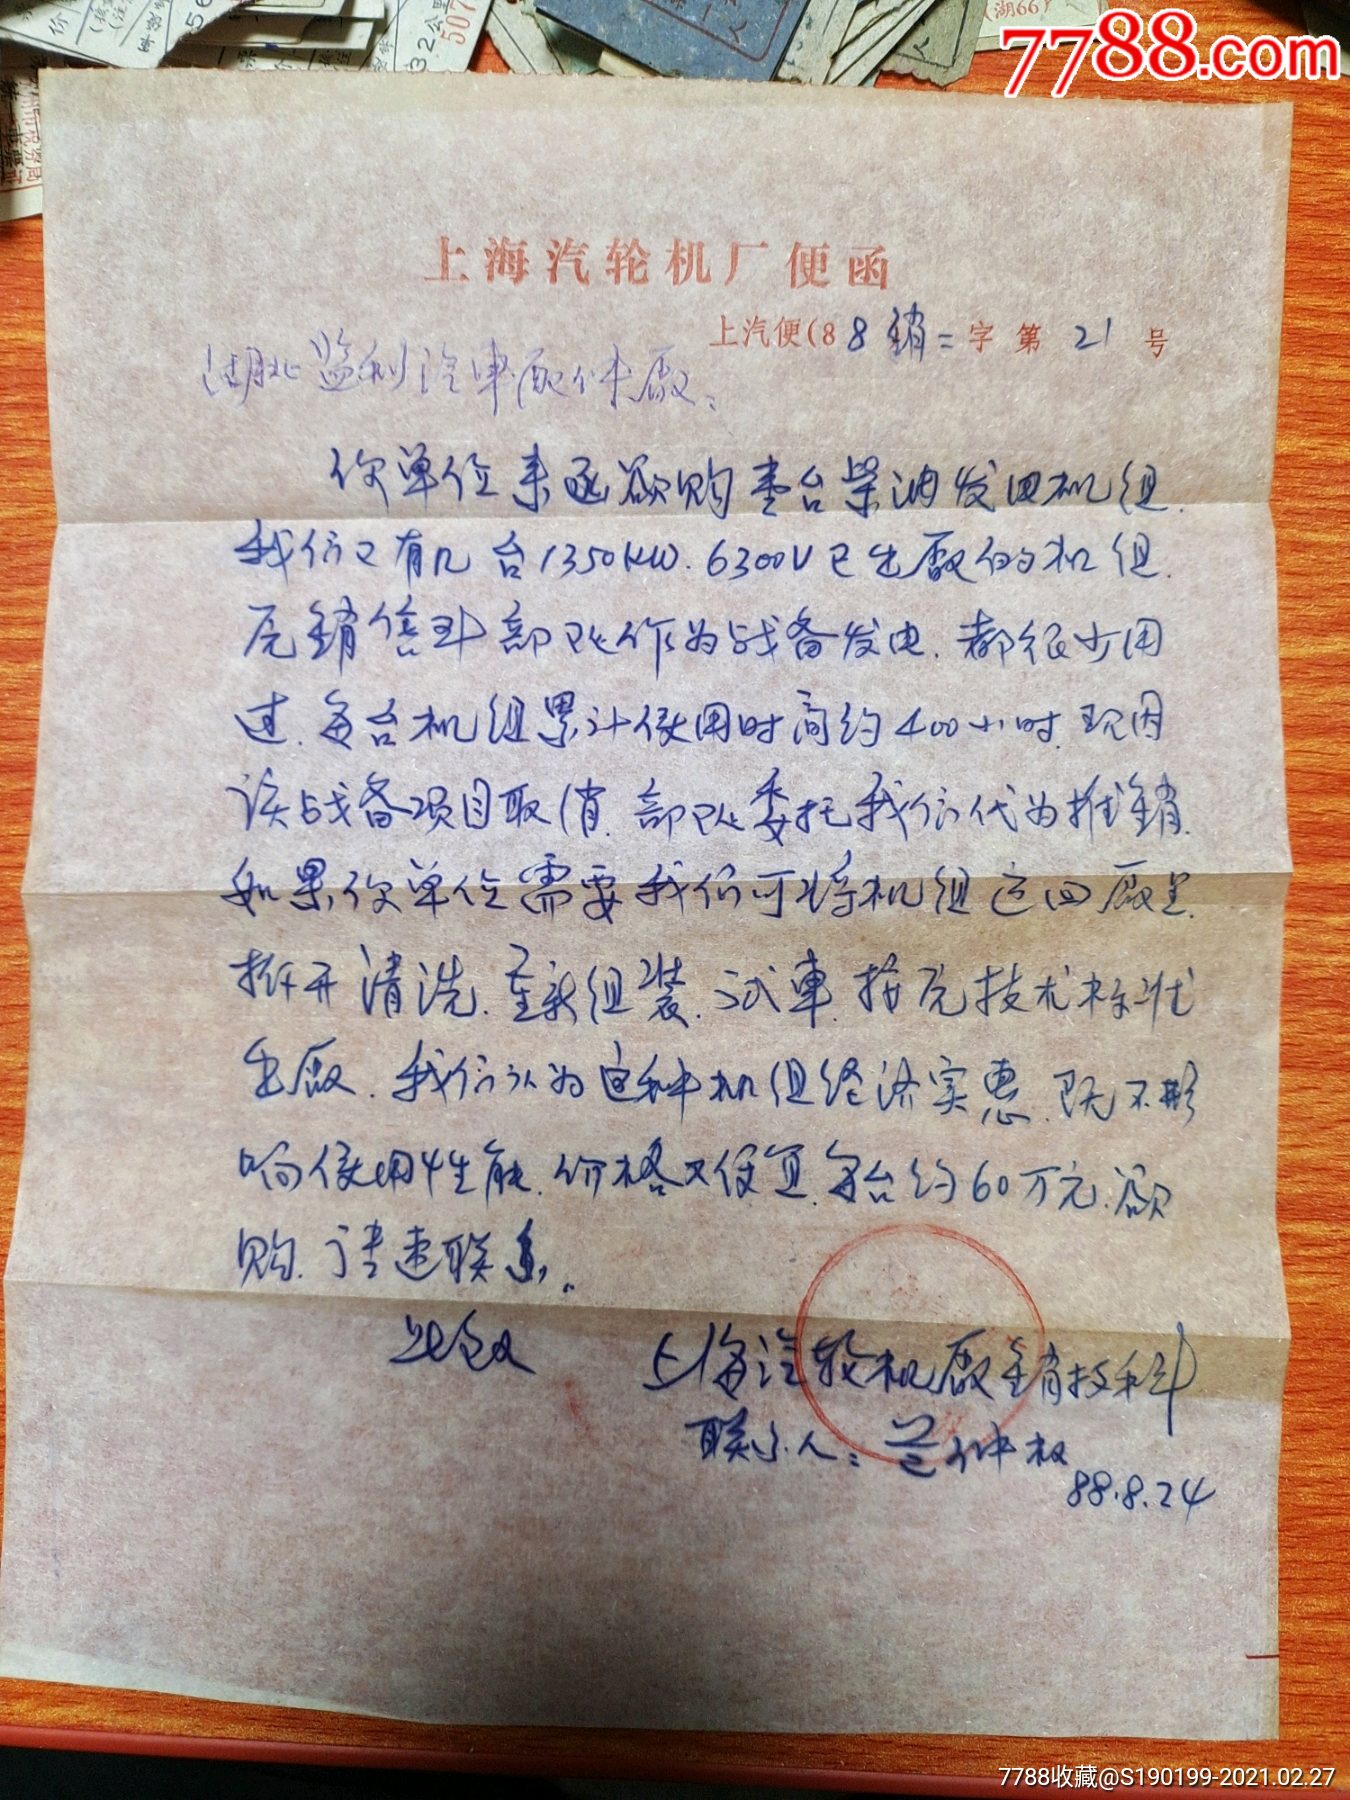 7788.com
上海汽轮机厂便函
上汽便(88銷二字第21号
湖北监利汽車配件厰:
你单位来函欲购壹台柴油发电机组.
我们又有几台1350KW.6300V已出厰的机组.
原銷售部队作为战备发电.都很少用
过.每台机组累计使用时间约400小时.现因
该战备项目取消.部队委托我们代为推銷.
如果你单位需要我们可将机组运回厰里.
拆开清洗.重新组装.试車.按原技术标准
出厰.我们认为这种机组经济实惠.既不影
响使用性能.价格又便宜.每台约60万元.欲
购.请速联系.
此致
上海汽轮机厰銷技科
联系人:仲权
88.8.24
7788收藏@S190199-2021.02.27